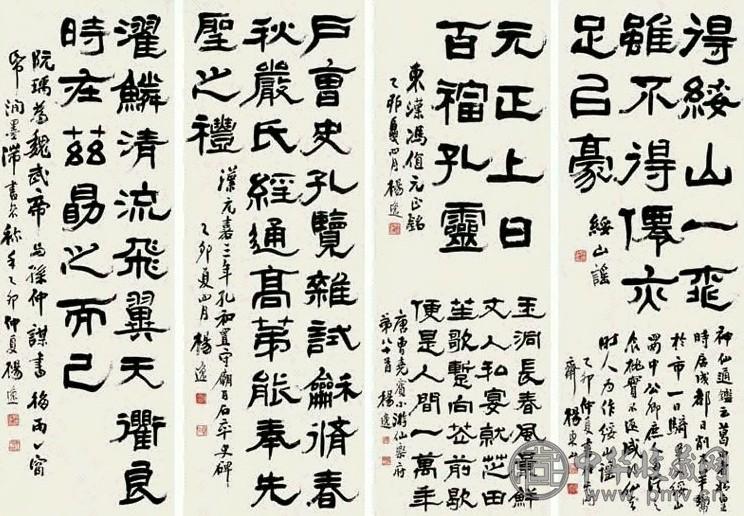 得綏山一桃
雖不得僊亦
足㠯豪
綏山謠
時居成都日削木羊鬻
於市一日騎羊入綏山
蜀中公卿庶民追從之
時人為作綏山謠
乙卯仲夏書
元正上日
百福孔靈
東漢馮 元正銘
乙卯夏四月 楊逸
玉洞長春風景鮮
丈人私宴就芝田
笙歌暫向花前歇
便是人間一萬年
唐曹堯賓小游仙樂府
第八十首 楊逸
戶曹史孔覽雜試龢脩春
秋嚴氏經通高第能奉先
聖之禮
漢元嘉三年孔和置守廟百石卒史碑
乙卯夏四月 楊逸
濯鱗清流飛翼天衢良
時在茲勖之而已
阮瑀為魏武帝與孫仲謀書 梅雨入窗
帋潤墨滯書 稱手乙卯仲夏楊逸
中华收藏网
www.pmv.cn